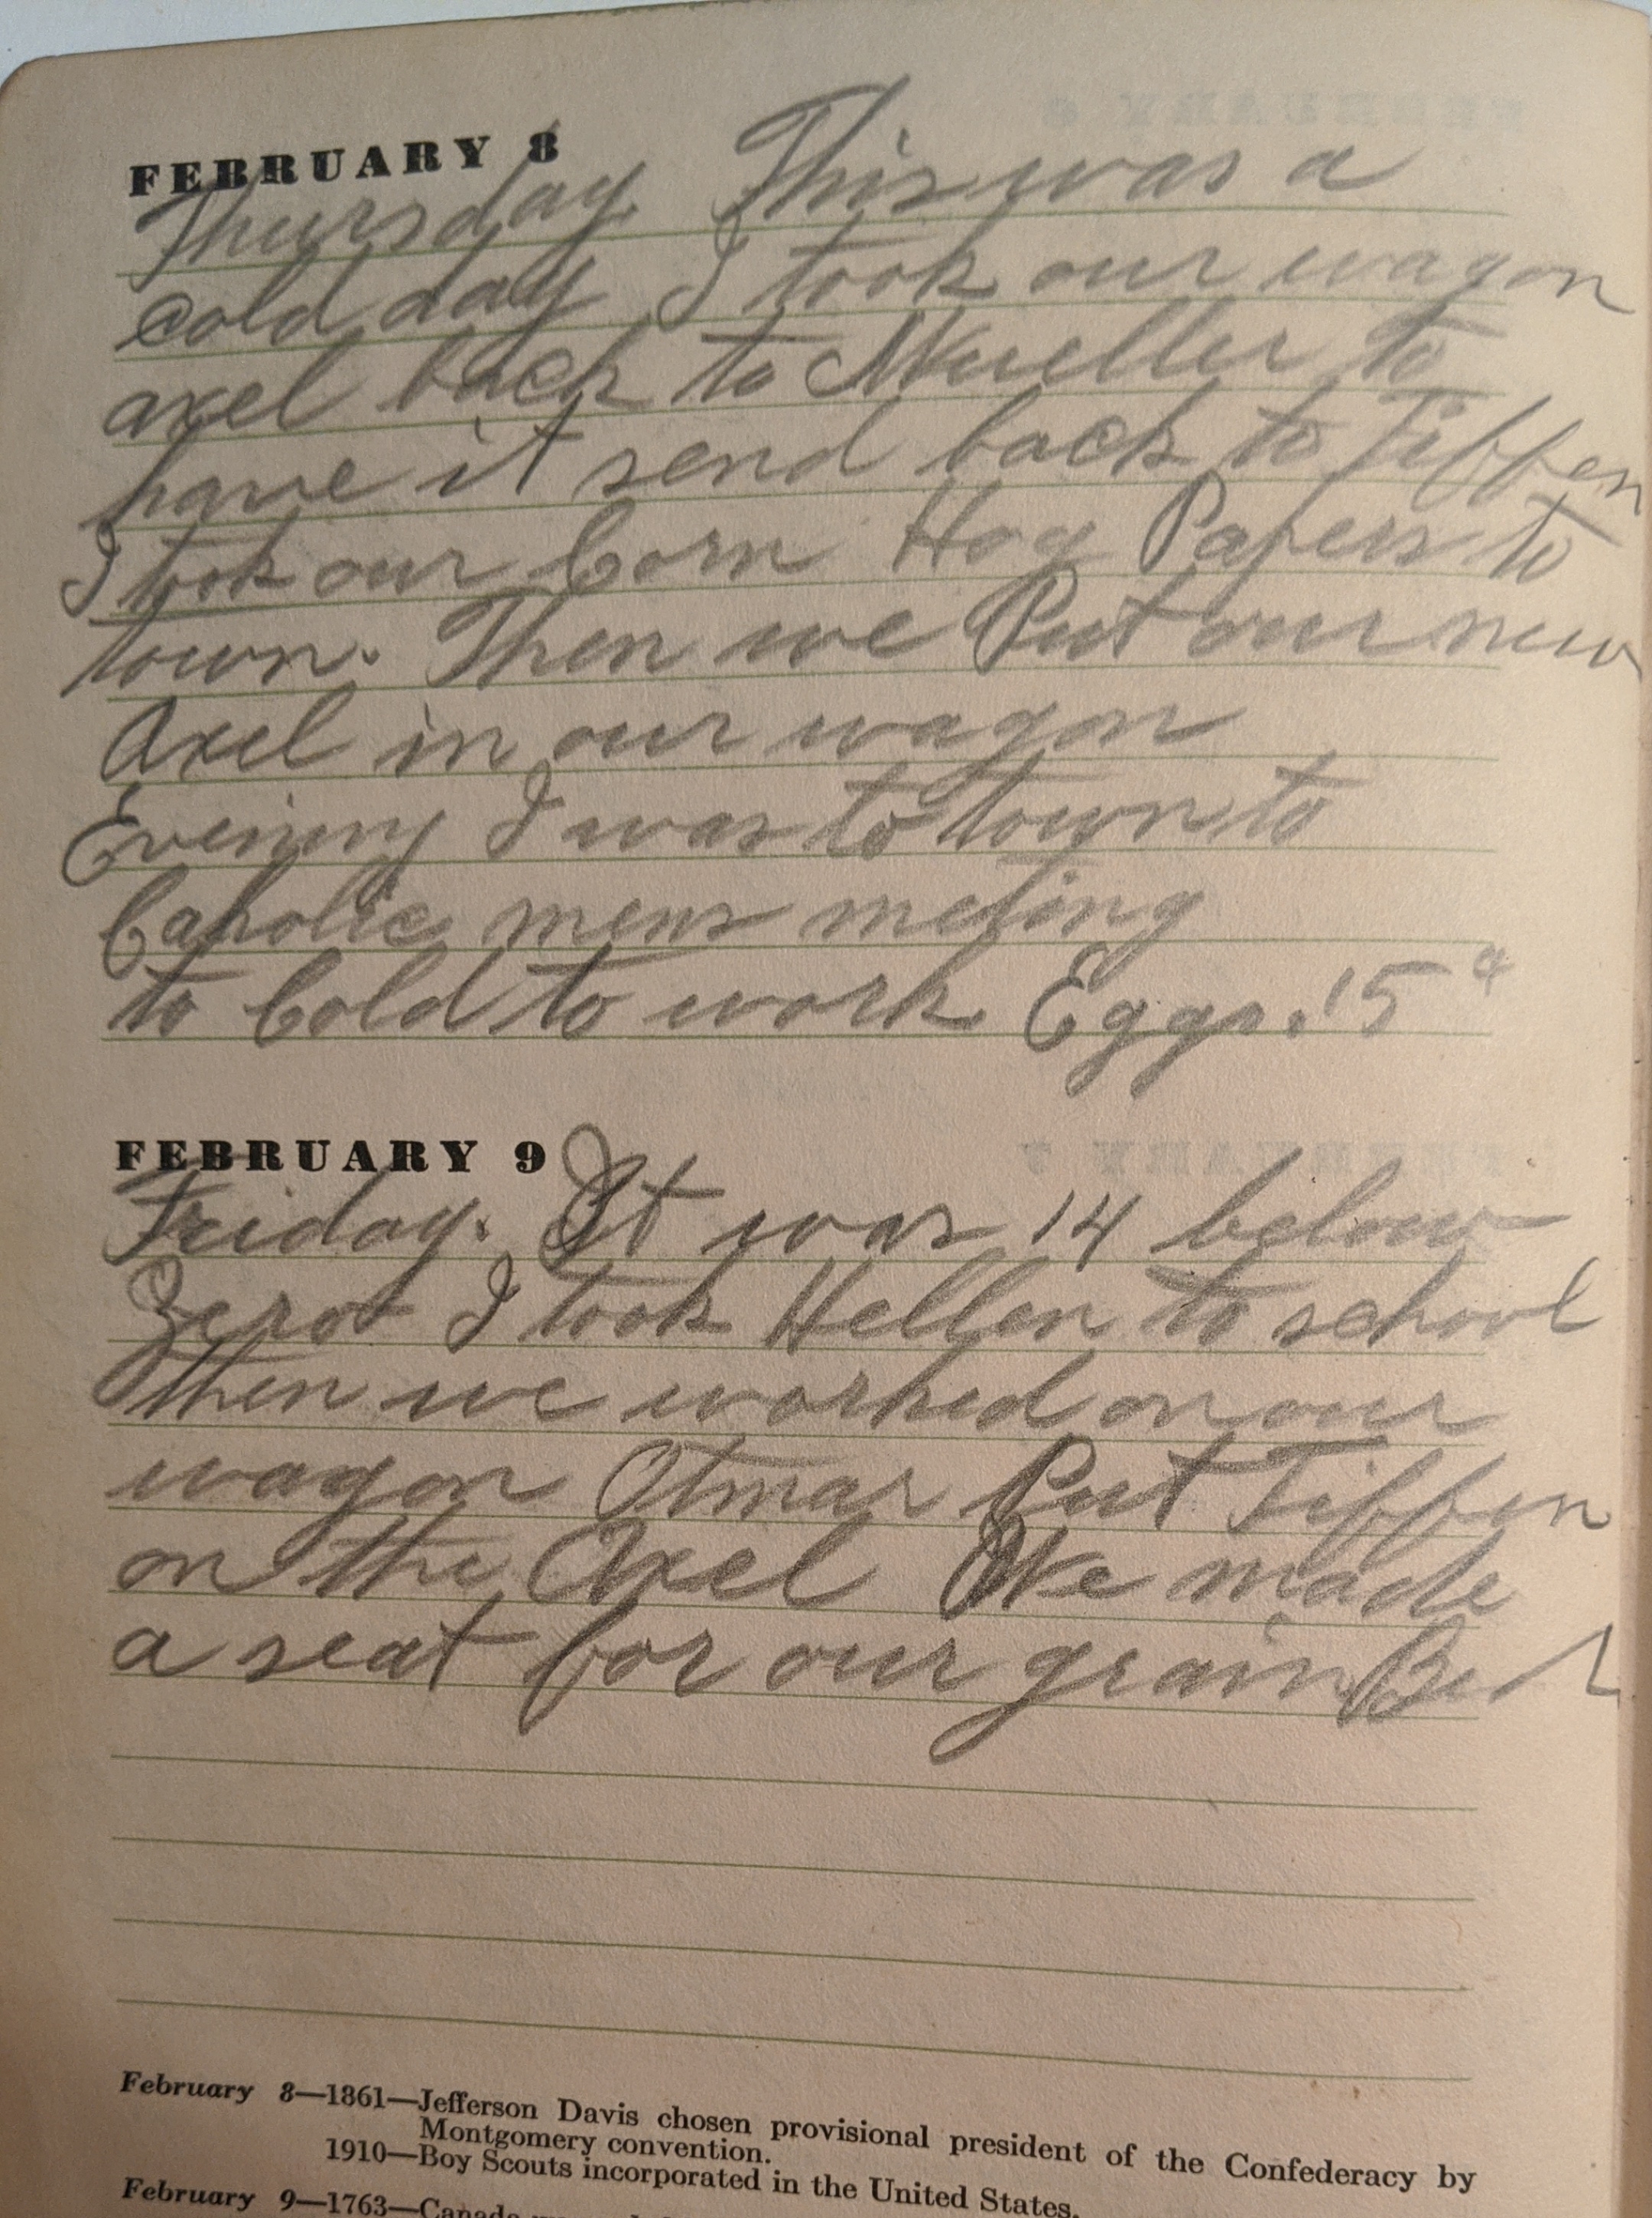 FEBRUARY 8
Thursday. This was a
cold day I took our wagon
axel back to Mueller to
have it send back to Tiffen
I took our Corn Hog Papers to
town. Then we Put our new
Axel in our wagon
Evening I was to town to
Caholic mens meting
to Cold to work. Eggs. 15 ¢
FEBRUARY 9
Friday. It was 14 below
Zero I took Hellen to school
Then we worked on our
wagon Otmar Put Tiffen
on the Axel We made
a seat for our grain
February 8—1861—Jefferson Davis chosen provisional president of the Confederacy by
Montgomery convention.
1910—Boy Scouts incorporated in the United States.
February 9—1763—Canada